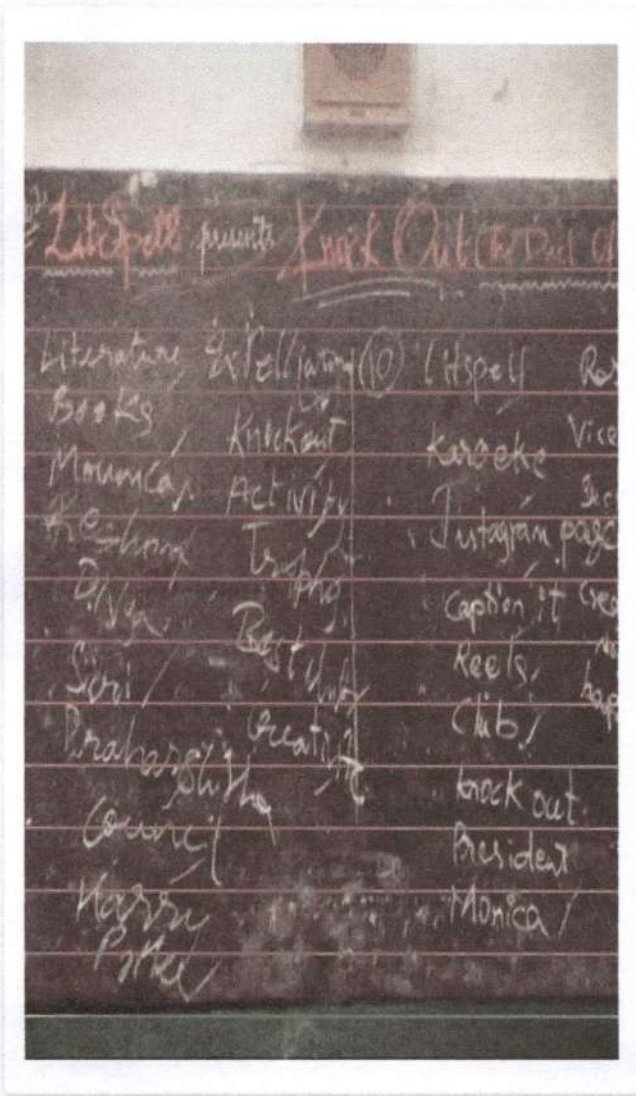 LitSpell presents Knock Out (The Duel Of
Literature
Books
Mounica
Keshava
Divya
Siri
Praharshitha
Council
Harry
Potter
Knockout
Activity
Trophy
Best
Creative
(10)
Litspell
Karoeke
Instagram page
Caption it
Reels
Club
knock out
President
Monica
Vice